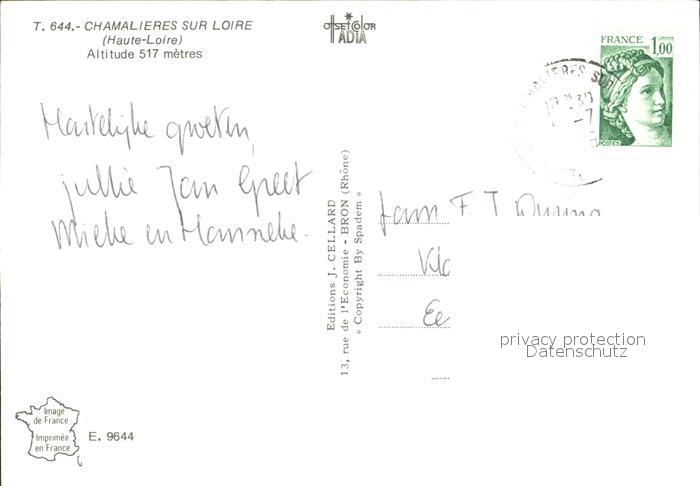 T. 644.- CHAMALIERES SUR LOIRE
(Haute-Loire)
Altitude 517 mètres
OFFSET COLOR
IADIA
FRANCE 1,00
POSTES
Hartelijke groeten,
jullie Jan Greet
Mieke en Hanneke.
Fam. F. J.
Editions J. CELLARD
13, rue de l'Economie - BRON (Rhône)
« Copyright By Spadem »
privacy protection
Datenschutz
Image
de France
Imprimée
en France
E. 9644